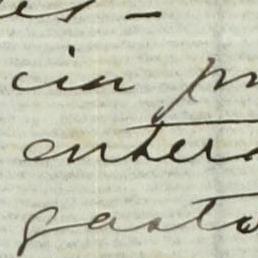 es -
cia p
entera
gasto